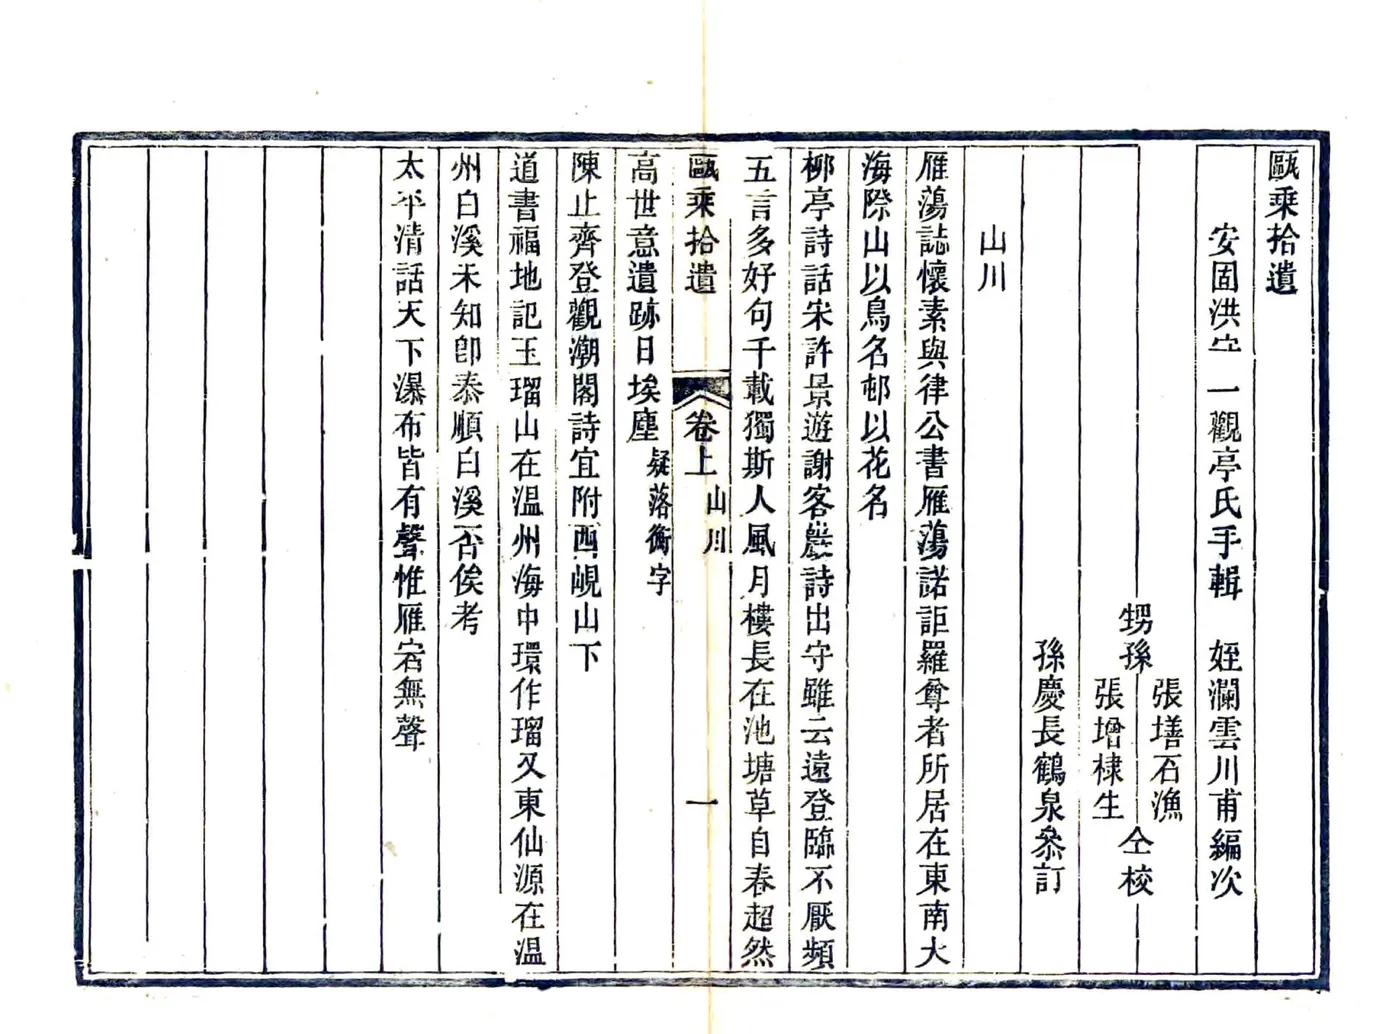 甌乗拾遺
安固洪守一觀亭氏手輯　姪瀾雲川甫編次
甥孫
張墡石漁
張增棣生
仝校
孫慶長鶴泉叅訂
山川
雁蕩誌懷素與律公書雁蕩諾詎羅尊者所居在東南大
海際山以鳥名邨以花名
柳亭詩話宋許景遊謝客巖詩出守雖云遠登臨不厭頻
五言多好句千載獨斯人風月樓長在池塘草自春超然
甌乗拾遺
卷上
山川
一
高世意遺跡日埃塵
疑落衡字
陳止齊登觀潮閣詩宜附西峴山下
道書福地記玉瑠山在温州海中環作瑠又東仙源在温
州白溪未知卽泰順白溪否俟考
太平清話天下瀑布皆有聲惟雁宕無聲